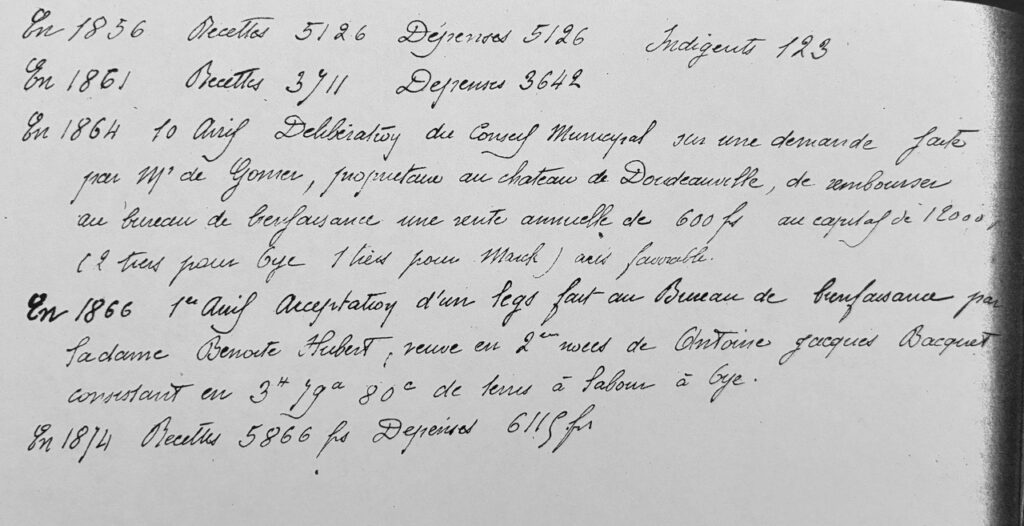 En 1856 Recettes 5126 Dépenses 5126 Indigents 123
En 1861 Recettes 3711 Depenses 3642
En 1864 10 Avril Delibération du Conseil Municipal sur une demande faite
par Mr de Gomer, propriétaire au chateau de Doudeauville, de rembourser
au bureau de bienfaisance une rente annuelle de 600 fs au capital de 12000,
(2 tiers pour Oye 1 tiers pour Marck) avis favorable.
En 1866 1er Avril Acceptation d'un legs fait au Bureau de bienfaisance par
la dame Benoite Hubert, veuve en 2em noces de Antoine Jacques Bacquet
consistant en 3H 79a 80c de terres à labour à Oye.
En 1874 Recettes 5866 fs Depenses 6115 fr